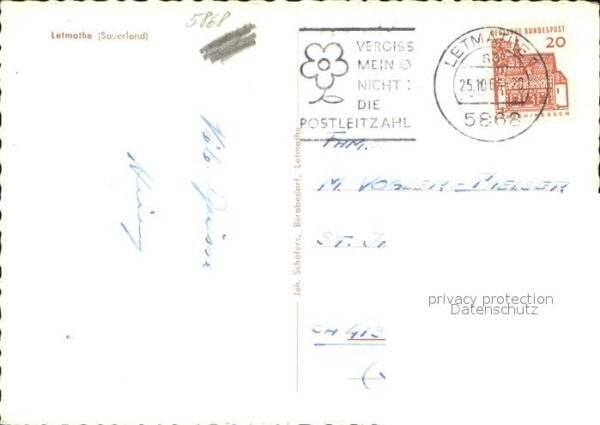 5868
Letmathe (Sauerland)
VERGISS
MEIN
NICHT
DIE
POSTLEITZAHL
LETMATHE
25.10.
5868
DEUTSCHE BUNDESPOST
20
HESSEN
FHM.
M. VOGLER-PIELSER
ST. J.
CH 412
Joh. Schäfers, Bürobedarf, Letmathe
privacy protection
Datenschutz